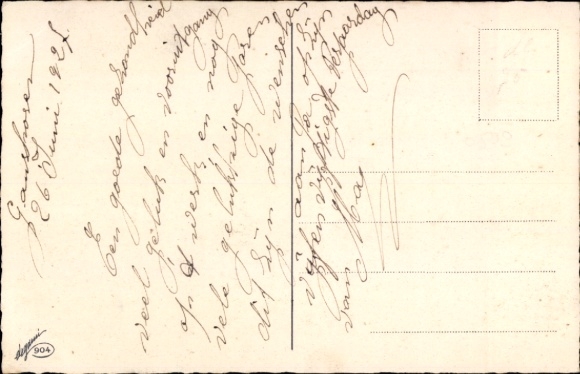 Ganshoren
26 Juni 1927.
Een goede gezondheid
veel geluk en vooruitgang
op 't werk en nog
vele gelukkige jaren
dit zijn de wenschen
aan Pa op zijn
vijf en vijftigste verjaardag
van Max
degami
904